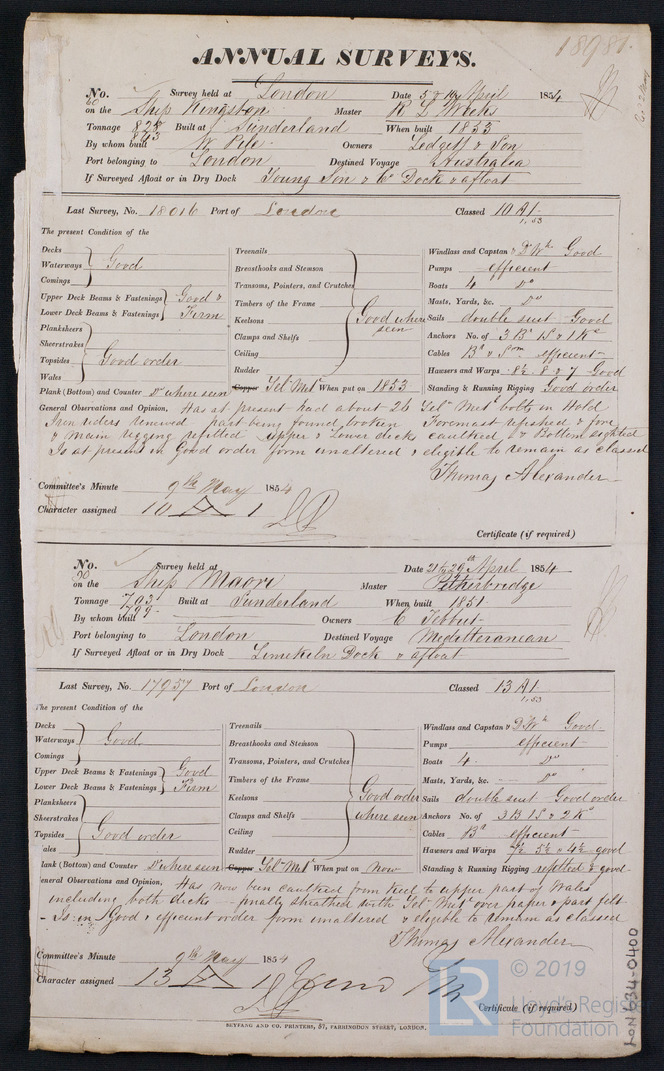 ANNUAL SURVEYS.
18981.
No. 60 Survey held at London Date 5 & 19 April 1854
on the Ship Kingston Master R L Weeks
Tonnage 828 843 Built at Sunderland When built 1853
By whom built W Pile Owners Lidgett & Son
Port belonging to London Destined Voyage Australia
If Surveyed Afloat or in Dry Dock Young Son & Co Dock & afloat
Last Survey, No. 18016 Port of London Classed 10 A1
1.53
The present Condition of the
Decks
Waterways Good
Comings
Upper Deck Beams & Fastenings Good &
Lower Deck Beams & Fastenings Firm
Planksheers
Sheerstrakes
Topsides Good order
Wales
Plank (Bottom) and Counter Do where seen
Treenails
Breasthooks and Stemson
Transoms, Pointers, and Crutches
Timbers of the Frame
Keelsons Good where seen
Clamps and Shelfs
Ceiling
Rudder
Copper Yel Metl When put on 1853
Windlass and Capstan & D Wh Good
Pumps efficient
Boats 4 Do
Masts, Yards, &c. Do
Sails double suit Good
Anchors No. of 3 Br 1 S & 1 Ke
Cables Br & Sm efficient
Hawsers and Warps 8½ 8 & 7 Good
Standing & Running Rigging Good order
General Observations and Opinion, Has at present had about 26 Yel Metl bolts in Hold
Iron riders renewed part being found broken Foremast refished & fore
& main rigging refitted Upper & Lower decks caulked & Bottom sighted
Is at present in Good order form unaltered & eligible to remain as classed
Thomas Alexander
Committee's Minute 9th May 1854
Character assigned 10 A 1
Certificate (if required)
No. 90 Survey held at Date 21 & 29th April 1854
on the Ship Maori Master Petherbridge
Tonnage 703 799 Built at Sunderland When built 1851
By whom built Owners C Tebbut
Port belonging to London Destined Voyage Mediterranean
If Surveyed Afloat or in Dry Dock Limekiln Dock & afloat
Last Survey, No. 17957 Port of London Classed 13 A1
1.53
The present Condition of the
Decks
Waterways Good
Comings
Upper Deck Beams & Fastenings Good
Lower Deck Beams & Fastenings Firm
Planksheers
Sheerstrakes
Topsides Good order
ales
lank (Bottom) and Counter Do where seen
Treenails
Breasthooks and Stemson
Transoms, Pointers, and Crutches
Timbers of the Frame
Keelsons Good order
Clamps and Shelfs where seen
Ceiling
Rudder
Copper Yel Metl When put on Now
Windlass and Capstan & D Wh Good
Pumps efficient
Boats 4 Do
Masts, Yards, &c. Do
Sails double suit Good order
Anchors No. of 3 B 1 S & 2 Ks
Cables Br efficient
Hawsers and Warps 7½ 5½ & 4½ good
Standing & Running Rigging refitted & good
eneral Observations and Opinion, Has now been caulked from Keel to upper part of Wales
including both decks finally sheathed with Yel Metl over paper & part felt
Is in Good & efficient order form unaltered & eligible to remain as classed
Thomas Alexander
Committee's Minute 9th May 1854
Character assigned 13 A 1
Certificate (if required)
SEYFANG AND CO. PRINTERS, 57, FARRINGDON STREET, LONDON.
LR
© 2019
Lloyd's Register
Foundation
LON634-0400